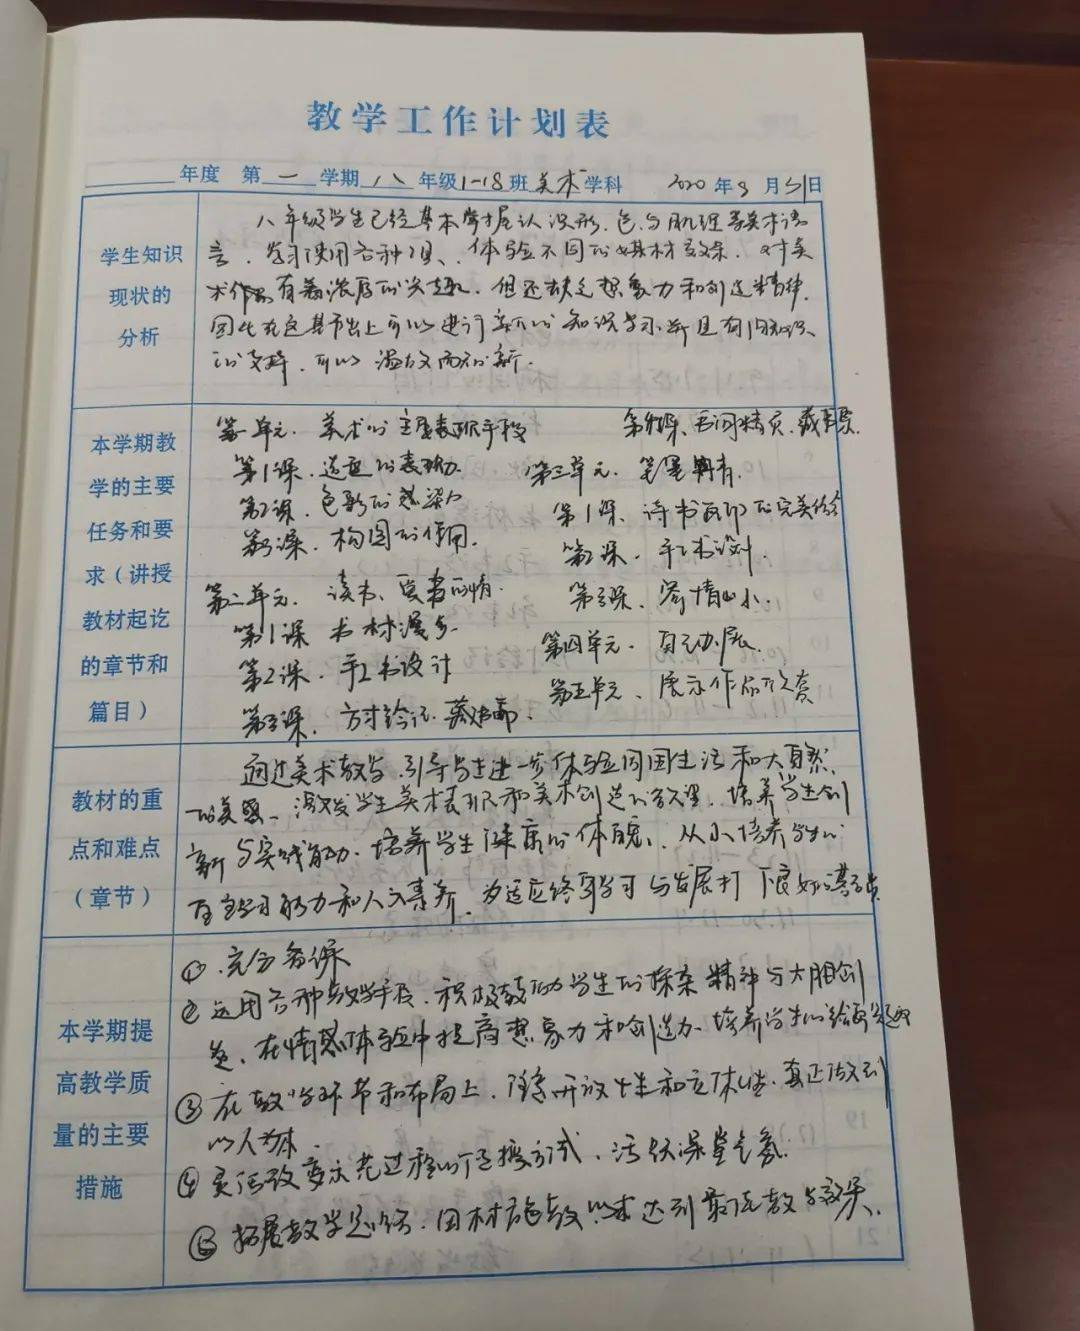 教学工作计划表
年度 第一学期 八年级1-18班美术学科 2020年8月31日
学生知识
现状的
分析
八年级学生已经基本掌握认识形、色与肌理等美术语
言,学习使用各种工具,体验不同的媒材效果,对美
术作品有着浓厚的兴趣,但还缺乏想象力和创造精神,
因此在这基础上可以进行新的知识学习,并且有旧知识
的支撑,可以温故而知新.
本学期教
学的主要
任务和要
求(讲授
教材起讫
的章节和
篇目)
第一单元、美术的主要表现手段
第1课、造型的表现力
第2课、色彩的感染力
第3课、构图的作用
第二单元、读书、爱书的情
第1课 书林漫步
第2课、手工书设计
第3课、方寸
第4课、书间精页、藏书票
第三单元、笔墨
第1课、诗书画印的完美结合
第2课、手工书设计
第3课、寄情山水
第四单元、自己办展
第五单元、展示作品欣赏
教材的重
点和难点
(章节)
通过美术教学,引导学生进一步体验周围生活和大自然
的美感、激发学生美术表现和美术创造的欲望,培养学生创
新与实践能力,培养学生健康的体魄、从小培养学生的
自学习能力和人文素养,为适应终身学习与发展打下良好的基
本学期提
高教学质
量的主要
措施
①.充分备课
②运用各种教学手段,积极鼓励学生的探索精神与大胆创
造,在情感体验中提高想象力和创造力、培养学生的绘画
③在教学环节和布局上,开放性和立体性,真正做到
以人为本.
④灵活改变示范过程的直接方式,活跃课堂气氛.
⑤拓展教学思路,因材施教,以求达到最优教学效果.